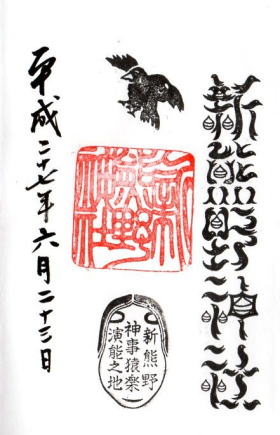 新熊野神社
新熊野
神事猿楽
演能之地
平成二十七年六月二十三日